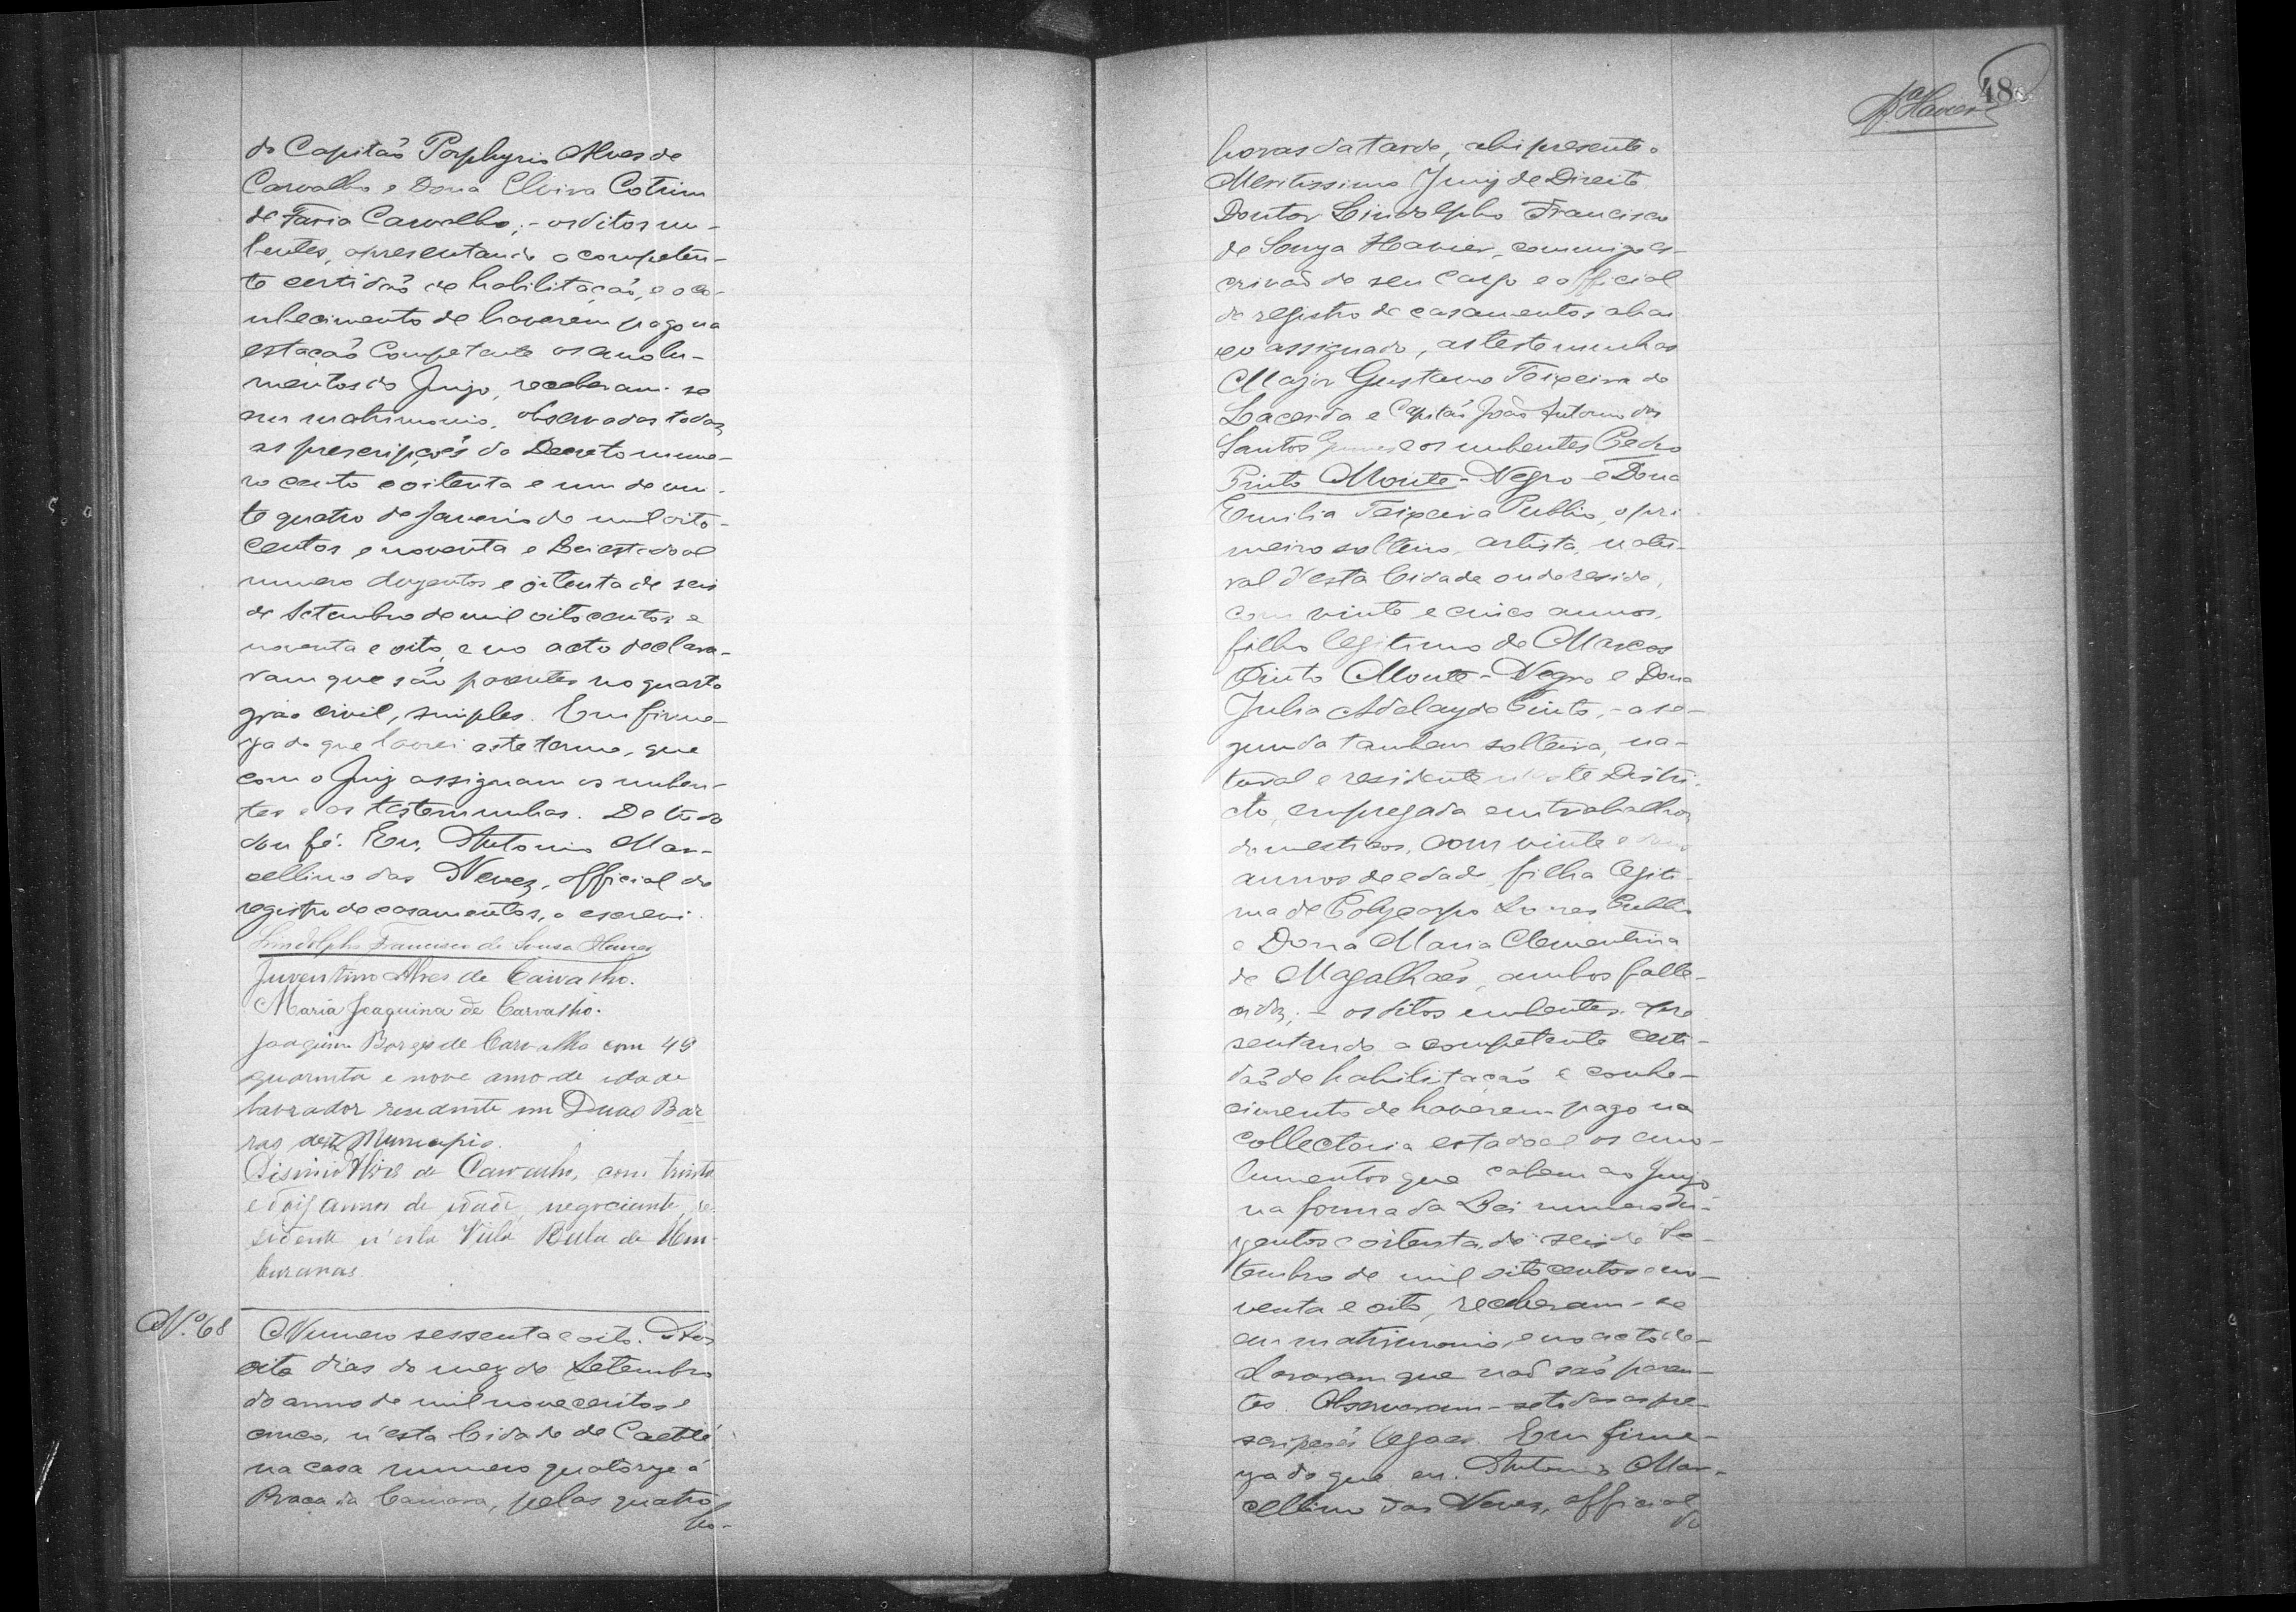 do Capitão Porphyrio Alves de
Carvalho e Dona Elvira Cotrim
de Faria Carvalho; - os ditos nu-
bentes, apresentando a competen-
te certidão de habilitação, e o co-
nhecimento de haverem pago na
estação Competente os emolu-
mentos do Juizo, receberam-se
em matrimonio, observadas todas
as prescripções do Decreto nume-
ro cento e oitenta e um de vin-
te quatro de Janeiro de mil oito-
centos e noventa e Lei estadoal
numero duzentos e oitenta de seis
de Setembro de mil oitocentos e
noventa e oito, e no acto declara-
ram que são parentes no quarto
gráo civil, simples. Em firme-
za do que lavrei este termo, que
com o Juiz assignam os nuben-
tes e as testemunhas. De tudo
dou fé. Eu, Antonio Mar-
cellino das Neves, official do
registro de casamentos, o escrevi.
Lindolpho Francisco de Souza Xavier
Juventino Alves de Carvalho.
Maria Joaquina de Carvalho.
Joaquim Borges de Carvalho com 49
quarenta e nove anno de idade
lavrador residente em Duas Bar
ras deste Municipio.
Alves de Carvalho, com trinta
e dois annos de idade, negociante, re-
sidente n'esta Villa Bella de Um-
buranas
Nº 68
Numero sessenta e oito. Aos
oito dias do mez de Setembro
do anno de mil novecentos e
cinco, n'esta Cidade de Caetité
na casa numero quatorze á
Praça da Camara, pelas quatro
ho-
48
Xavier
horas da tarde, ahi presente o
Meritissimo Juiz de Direito
Doutor Lindolpho Francisco
de Souza Xavier, commigo es-
crivão de seu cargo e official
do registro de casamentos abai
xo assignado, as testemunhas
Major Gustavo Teixeira de
Lacerda e Capitão João Antonio dos
Santos Gumes e os nubentes Pedro
Pinto Monte-Negro e Dona
Emilia Teixeira Publio, o pri-
meiro solteiro, artista, natu-
ral d'esta Cidade onde reside,
com vinte e cinco annos,
filho legitimo de Marcos
Pinto Monte-Negro e Dona
Julia Adelayde Pinto, - a se-
gunda tambem solteira, na-
tural e residente n'este Distri-
cto, empregada em trabalhos
domesticos, com vinte e
annos de edade, filha legiti-
ma de Polycarpo Publio
e Dona Maria Clementina
de Magalhães, ambos falle-
cidos; - os ditos nubentes apre
sentando a competente certi-
dão de habilitação e conhe-
cimento de haverem pago na
collectoria estadoal os emo-
lumentos que cabem ao Juizo
na forma da Lei numero du-
zentos e oitenta, de seis de Se-
tembro de mil oitocentos e no-
venta e oito, receberam-se
em matrimonio, e no acto de-
clararam que não são paren-
tes. Observaram-se todas as pre-
scripções legaes. Em firme-
za do que eu. Antonio Mar-
cellino das Neves, official
do